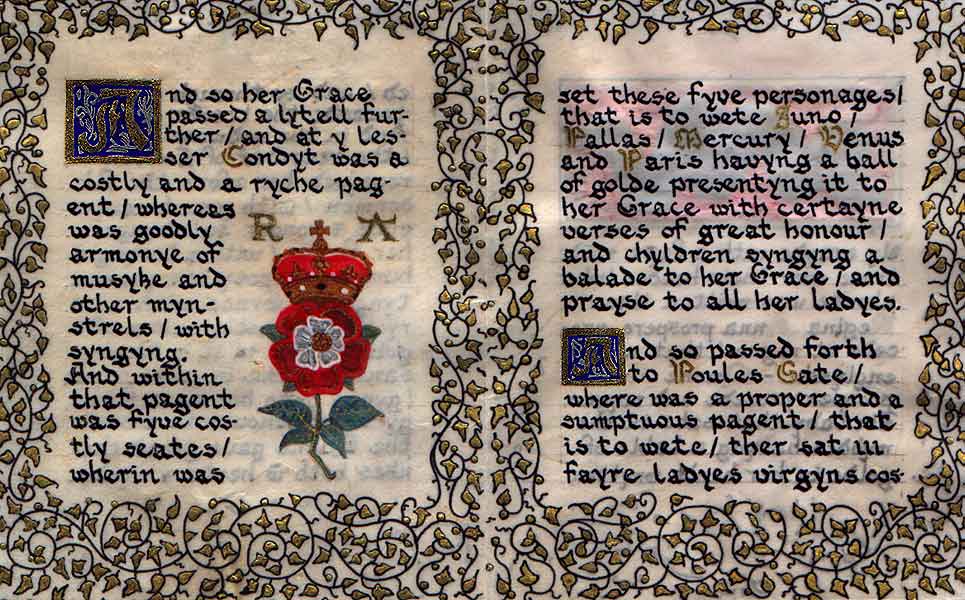 And so her Grace
passed a lytell fur-
ther / and at y les-
ser Condyt was a
costly and a ryche pag-
ent / whereas
was goodly
armonye of
musyke and
other myn-
strels / with
syngyng.
And within
that pagent
was fyve cos-
tly seates /
wherin was
R A
set these fyve personages /
that is to wete Juno /
Pallas / Mercury / Venus
and Paris havyng a ball
of golde presentyng it to
her Grace with certayne
verses of great honour /
and chyldren syngyng a
balade to her Grace / and
prayse to all her ladyes.
And so passed forth
to Poules Gate /
where was a proper and a
sumptuous pagent / that
is to wete / ther sat iii
fayre ladyes virgyns cos-